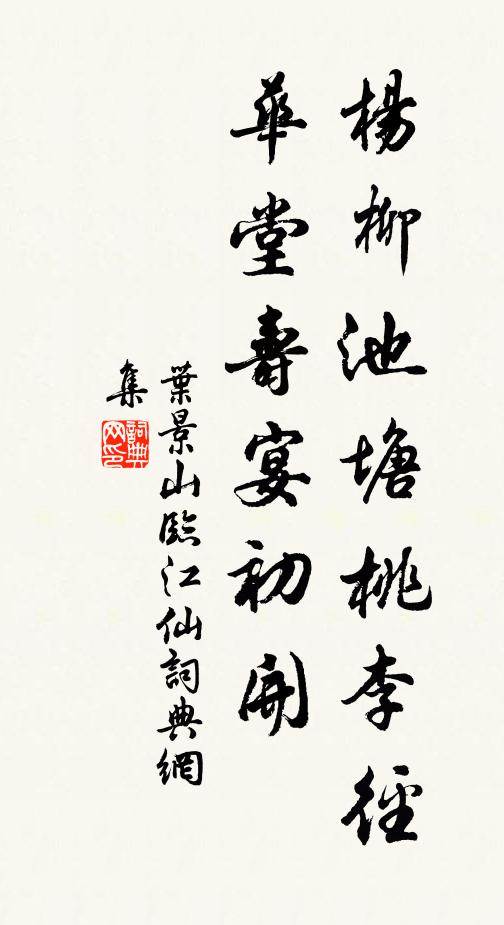 楊柳池塘桃李徑
華堂壽宴初開
葉景山臨江仙詞典網
集
詞典
网印